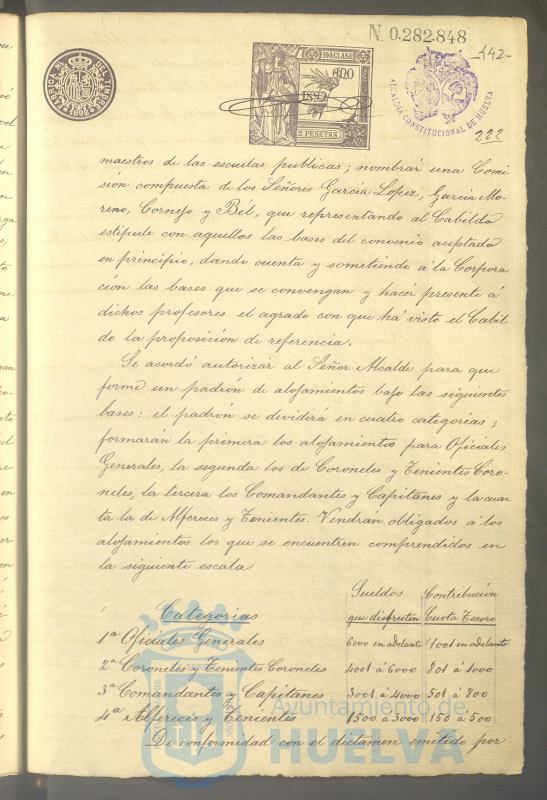 N. 0.282.848
442
FABRICA NL. DEL TIMBRE
10ª CLASE
AÑO
1895
2 PESETAS
ALCALDIA CONSTITUCIONAL DE HUELVA
222
maestros de las escuelas publicas; nombrar una Comi
sión compuesta de los Señores Garcia Lopez, Garcia Mo-
reno, Cornejo y Bél, que representando al Cabildo
estipule con aquellos las bases del convenio aceptado
en principio, dando cuenta y sometiendo á la Corpora
cion las bases que se convengan y hacer presente á
dichos profesores el agrado con que há visto el Cabil
do la proposición de referencia.
Se acordó autorizar al Señor Alcalde para que
forme un padrón de alojamientos bajo las siguientes
bases: el padrón se dividirá en cuatro categorias;
formarán la primera los alojamientos para Oficiales
Generales, la segunda los de Coroneles y Tenientes Coro-
neles, la tercera los Comandantes y Capitanes y la cuar
ta la de Alfereces y Tenientes. Vendrán obligados á los
alojamientos los que se encuentren comprendidos en
la siguiente escala
Sueldos Contribución
Categorias que disfruten Cuota Tesoro
1ª Oficiales Generales 6000 en adelante 1001 en adelante
2ª Coroneles y Tenientes Coroneles 4001 á 6000 801 á 1000
3ª Comandantes y Capitanes 3001 á 4000 501 á 800
4ª Alfereces y Tenientes 1500 á 3000 150 á 500
De conformidad con el dictamen emitido por
Ayuntamiento de
HUELVA